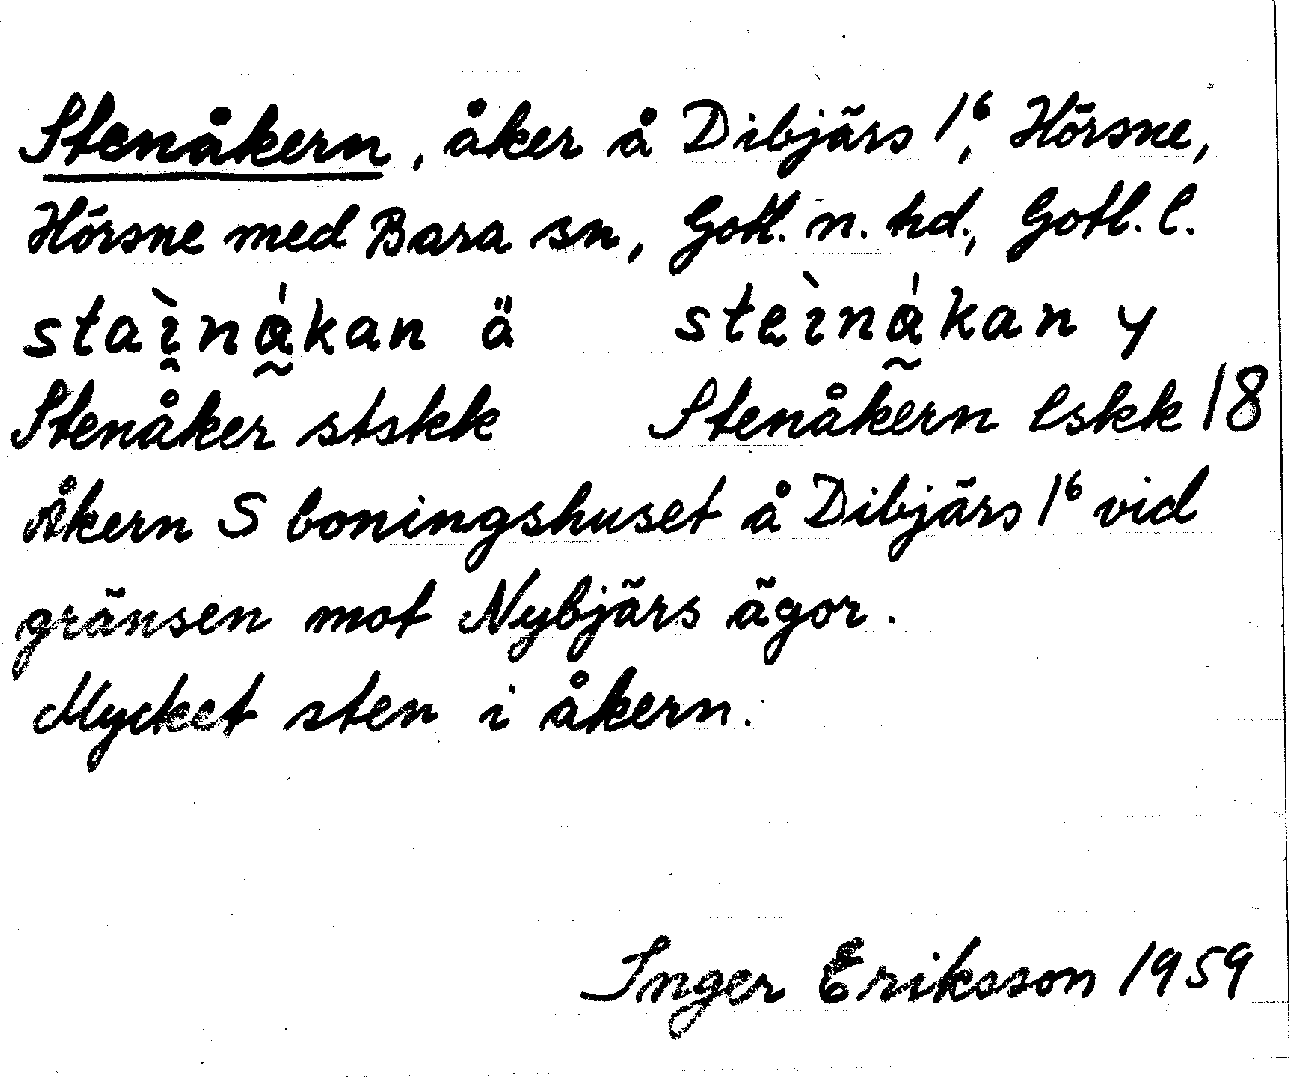 Stenåkern, åker å Dibjärs 1⁶, Hörsne,
Hörsne med Bara sn, Gotl. n. hd., Gotl. l.
staìnákan ä steìnákan y
Stenåker stskk Stenåkern lskk 18
Åkern S boningshuset å Dibjärs 1⁶ vid
gränsen mot Nybjärs ägor.
Mycket sten i åkern.
Inger Eriksson 1959